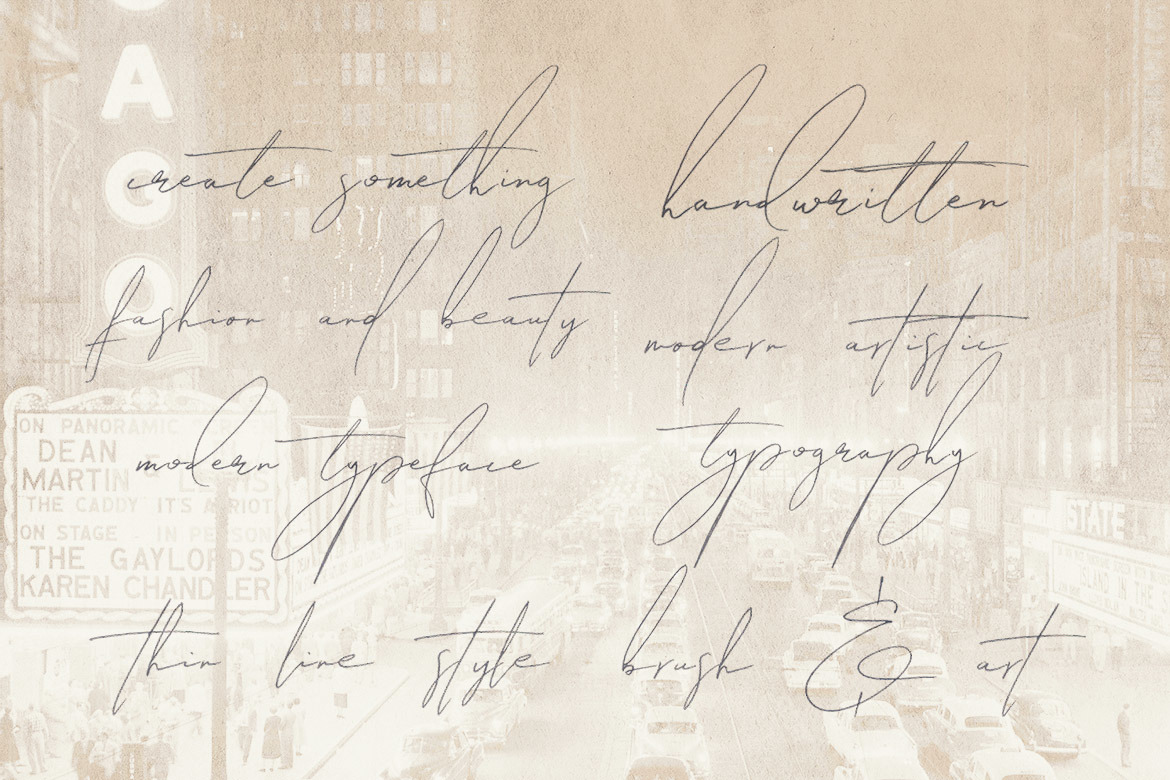 AGO
create something
handwritten
fashion and beauty
modern artistic
modern typeface
typography
thin line style
brush & art
ON PANORAMIC
DEAN
MARTIN & LEWIS
THE CADDY IT'S A RIOT
ON STAGE - IN PERSON
THE GAYLORDS
KAREN CHANDLER
STATE
ISLAND IN THE